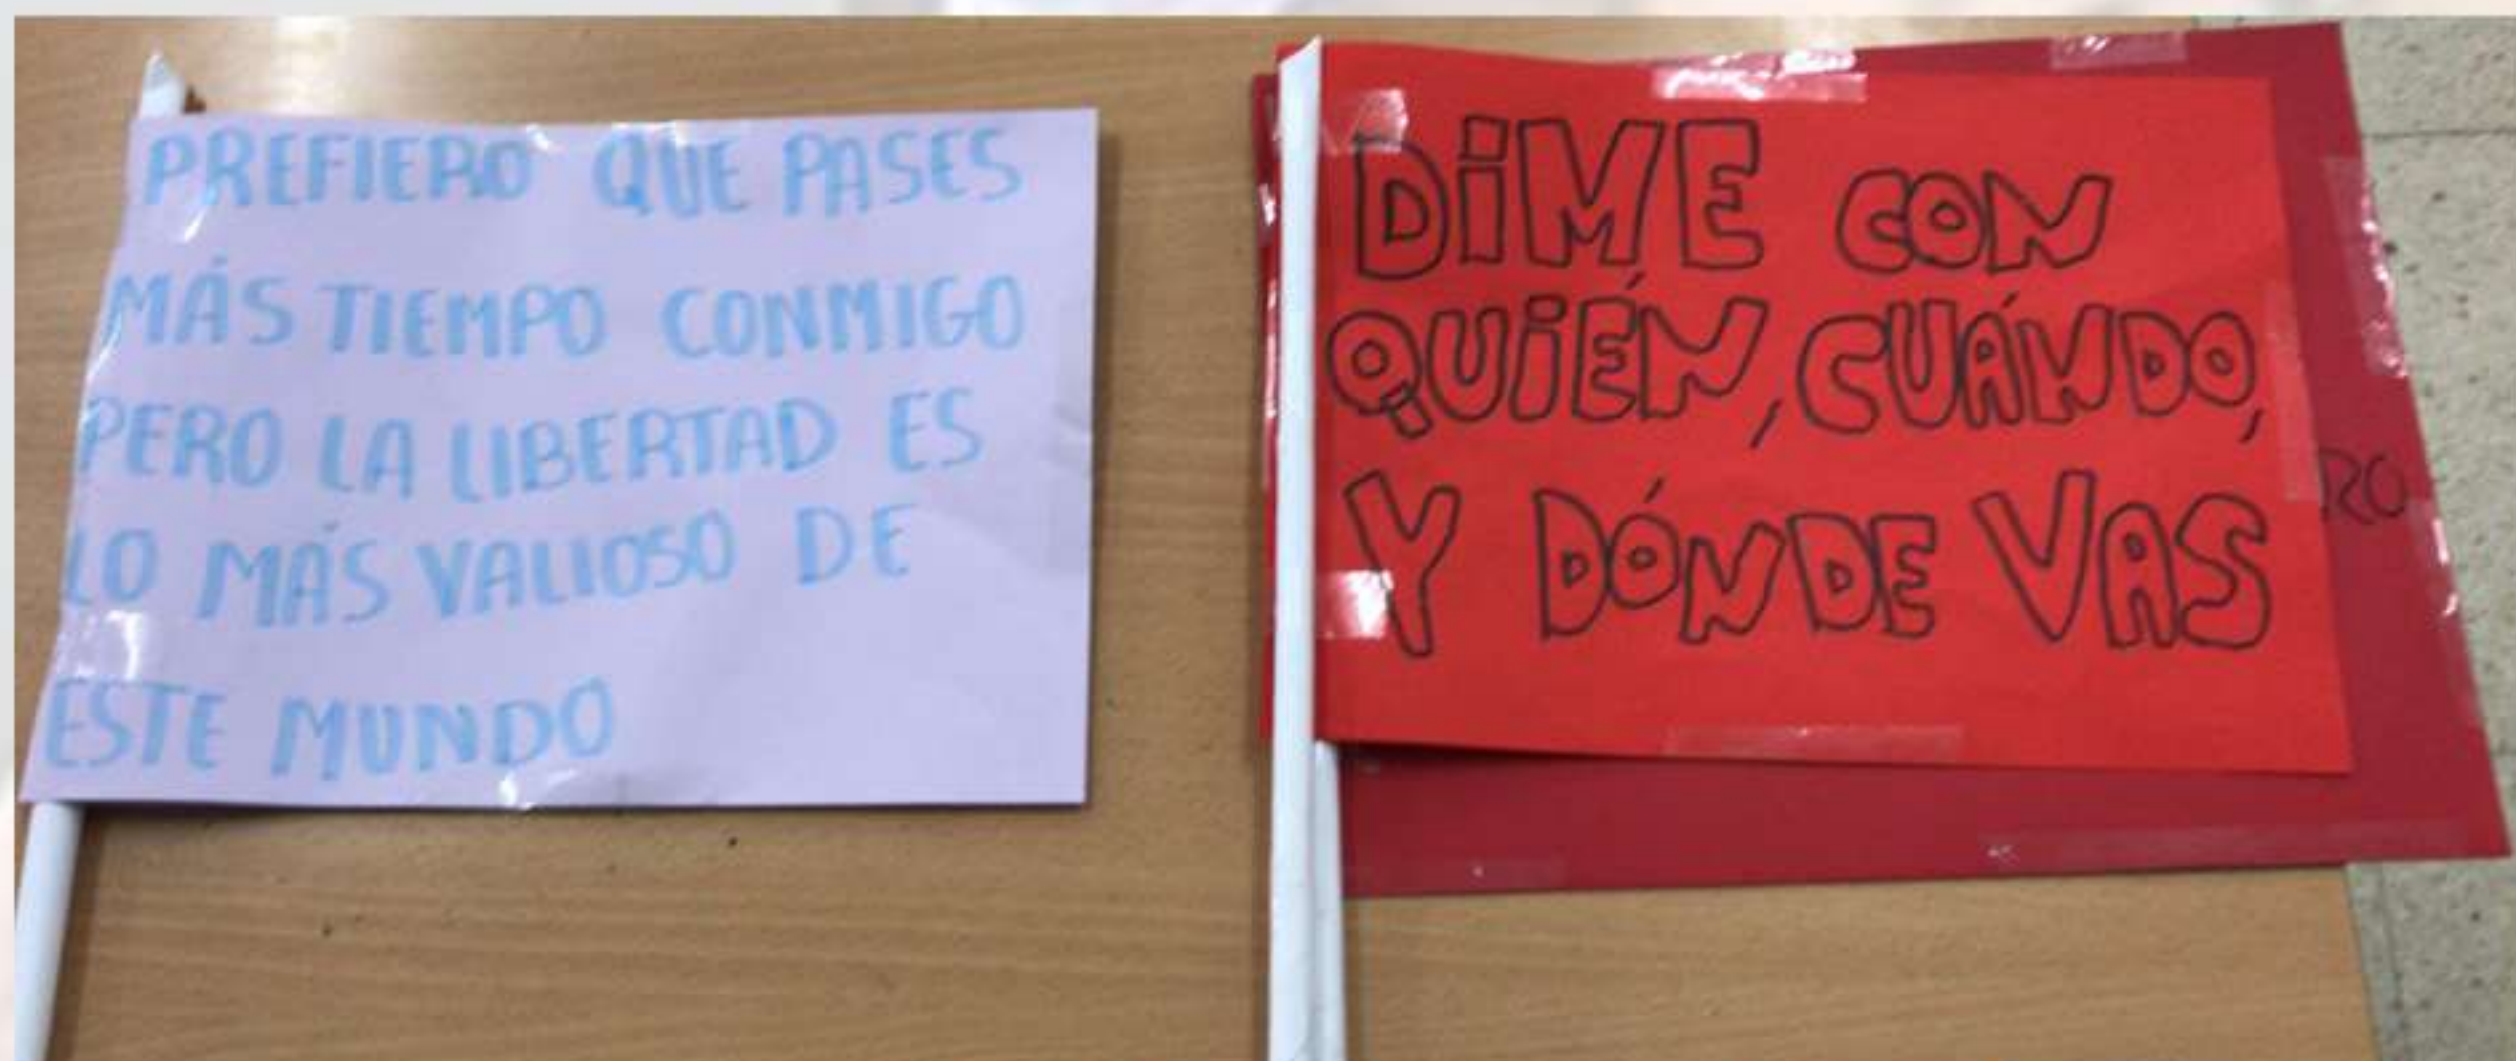 PREFIERO QUE PASES
MÁS TIEMPO CONMIGO
PERO LA LIBERTAD ES
LO MÁS VALIOSO DE
ESTE MUNDO
DIME CON
QUIÉN, CUÁNDO,
Y DÓNDE VAS
RO